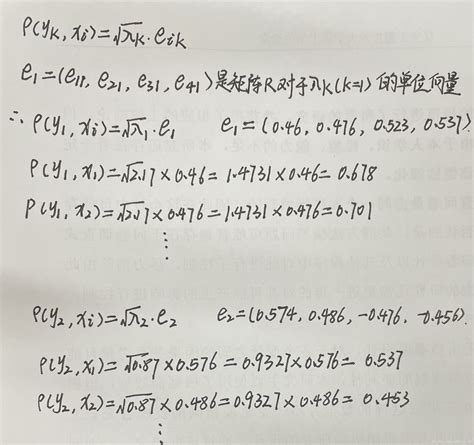 ρ(yₖ, xᵢ)=√λₖ · eᵢₖ
e₁=(e₁₁, e₂₁, e₃₁, e₄₁)是矩阵R对于λₖ(k=1)的单位向量
∴ ρ(y₁, xᵢ)=√λ₁ · e₁ e₁=(0.46, 0.476, 0.523, 0.537).
ρ(y₁, x₁)=√2.17×0.46=1.4731×0.46=0.678
ρ(y₁, x₂)=√2.17×0.476=1.4731×0.476=0.701
⋮
ρ(y₂, xᵢ)=√λ₂ · e₂ e₂=(0.574, 0.486, -0.476, -0.456).
ρ(y₂, x₁)=√0.87×0.576=0.9327×0.576=0.537
ρ(y₂, x₂)=√0.87×0.486=0.9327×0.486=0.453
⋮